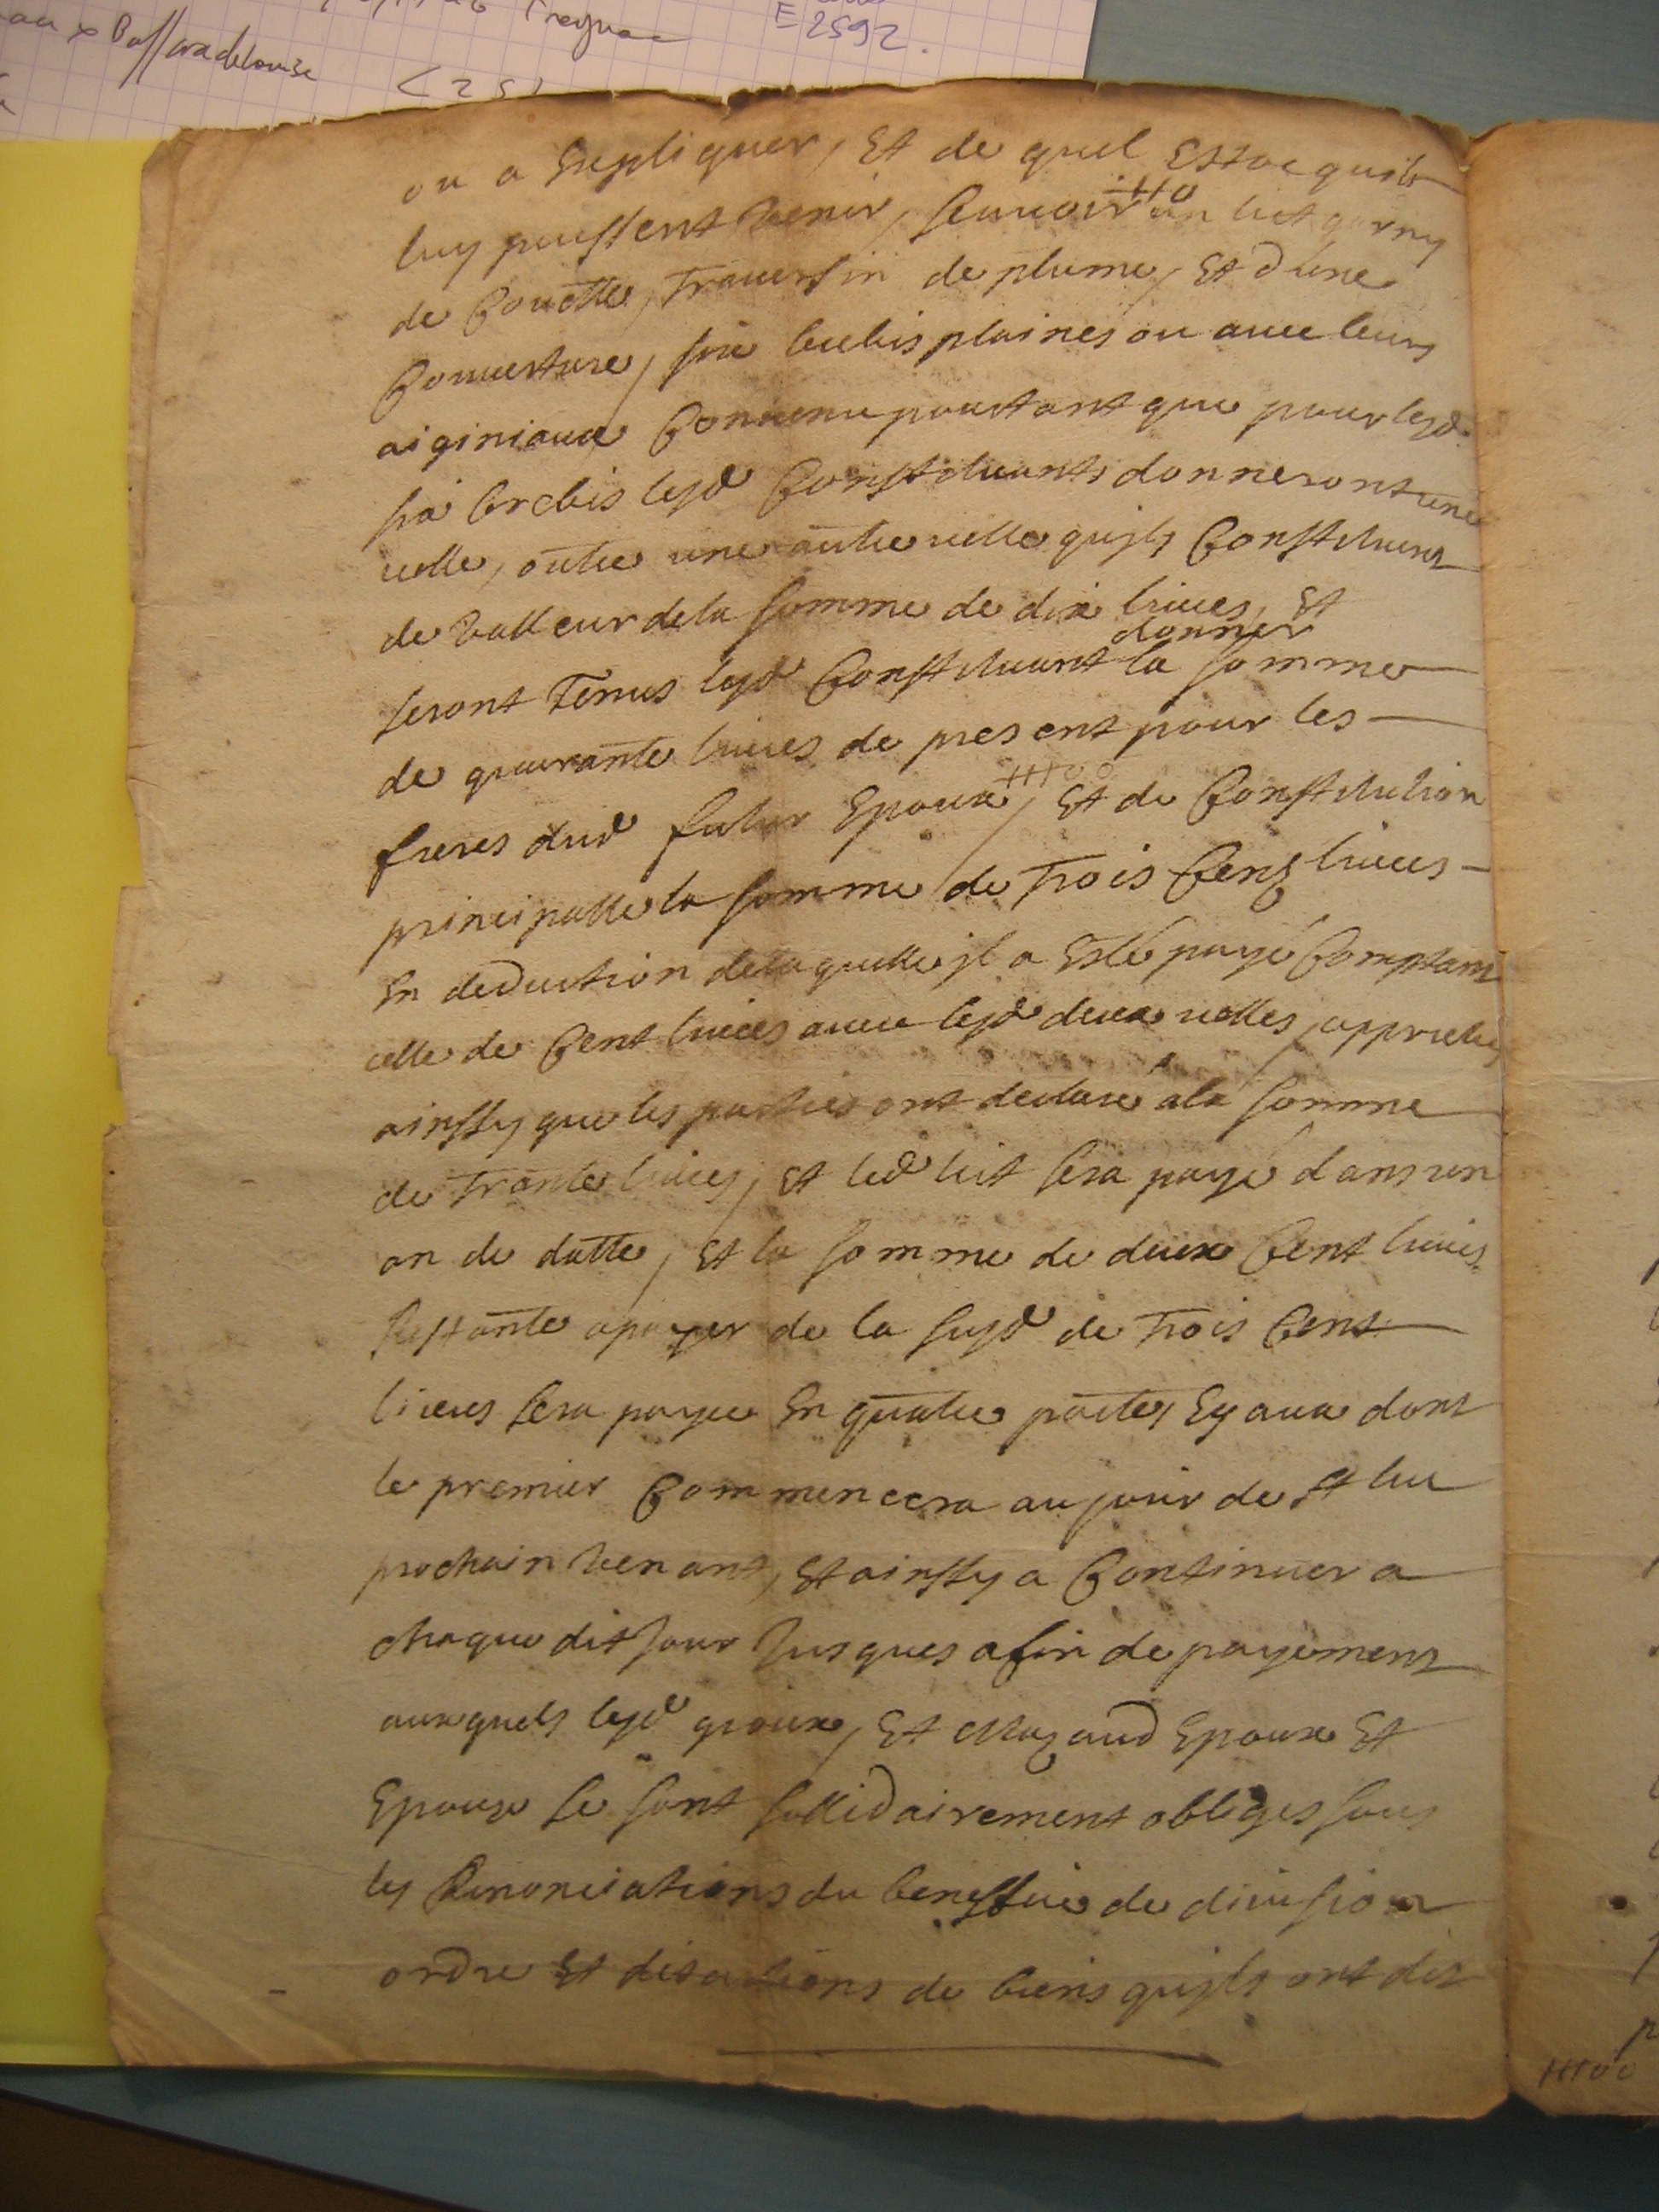 E 2592.
ou a Expliquer, Et de quel Estoc quils
luy puissent venir, scauoir un lict garny
de Couette, Trauersin de plume, Et dune
Couuerture, six brebis plaines ou auec leurs
aiginiaux Conuenu pourtant que pour lesd.
six brebis lesd Constituants donneront une
velle, outre une autre velle quils Constituent
de valleur de la somme de dix liures, Et
donner
seront Tenus lesd Constituant la somme
de quarante liures de present pour les
freres dud futur Epoux, Et de Constitution
principalle la somme de Trois Cens liures
En deduction de laquelle jl a Esté payé Comptant
celle de Cent liures auec lesd deux velles, appretiés
ainssy que les parties ont declaré a la somme
de Trante liures, Et led lict sera payé dans un
an de datte, Et la somme de deux Cent liures
Restante a payer de la susd de Trois Cent
liures sera payee En quatre pactes Egaux dont
le premier Commencera au jour de St luc
prochain venant, Et ainssy a Continuer a
chaque dit jour Jusques a fin de payement
auxquels lesd gioux, Et Mazaud Epoux Et
Epouze se sont sollidairement obligés sous
les Renonciations du beneffice de division
ordre Et discutions de biens quils ont dit